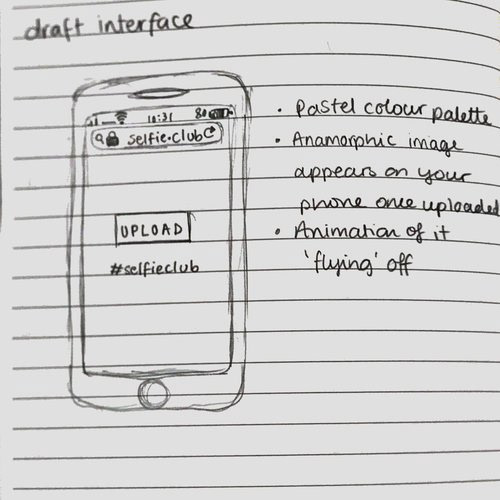 draft interface
10:31 80
selfie.club
UPLOAD
#selfieclub
• Pastel colour palette
• Anamorphic image
appears on your
phone once uploaded
• Animation of it
'flying' off